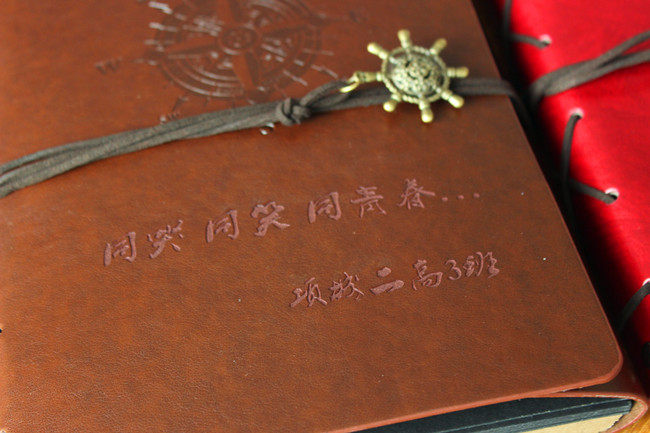 同哭 同笑 同青春...
项城二高3班